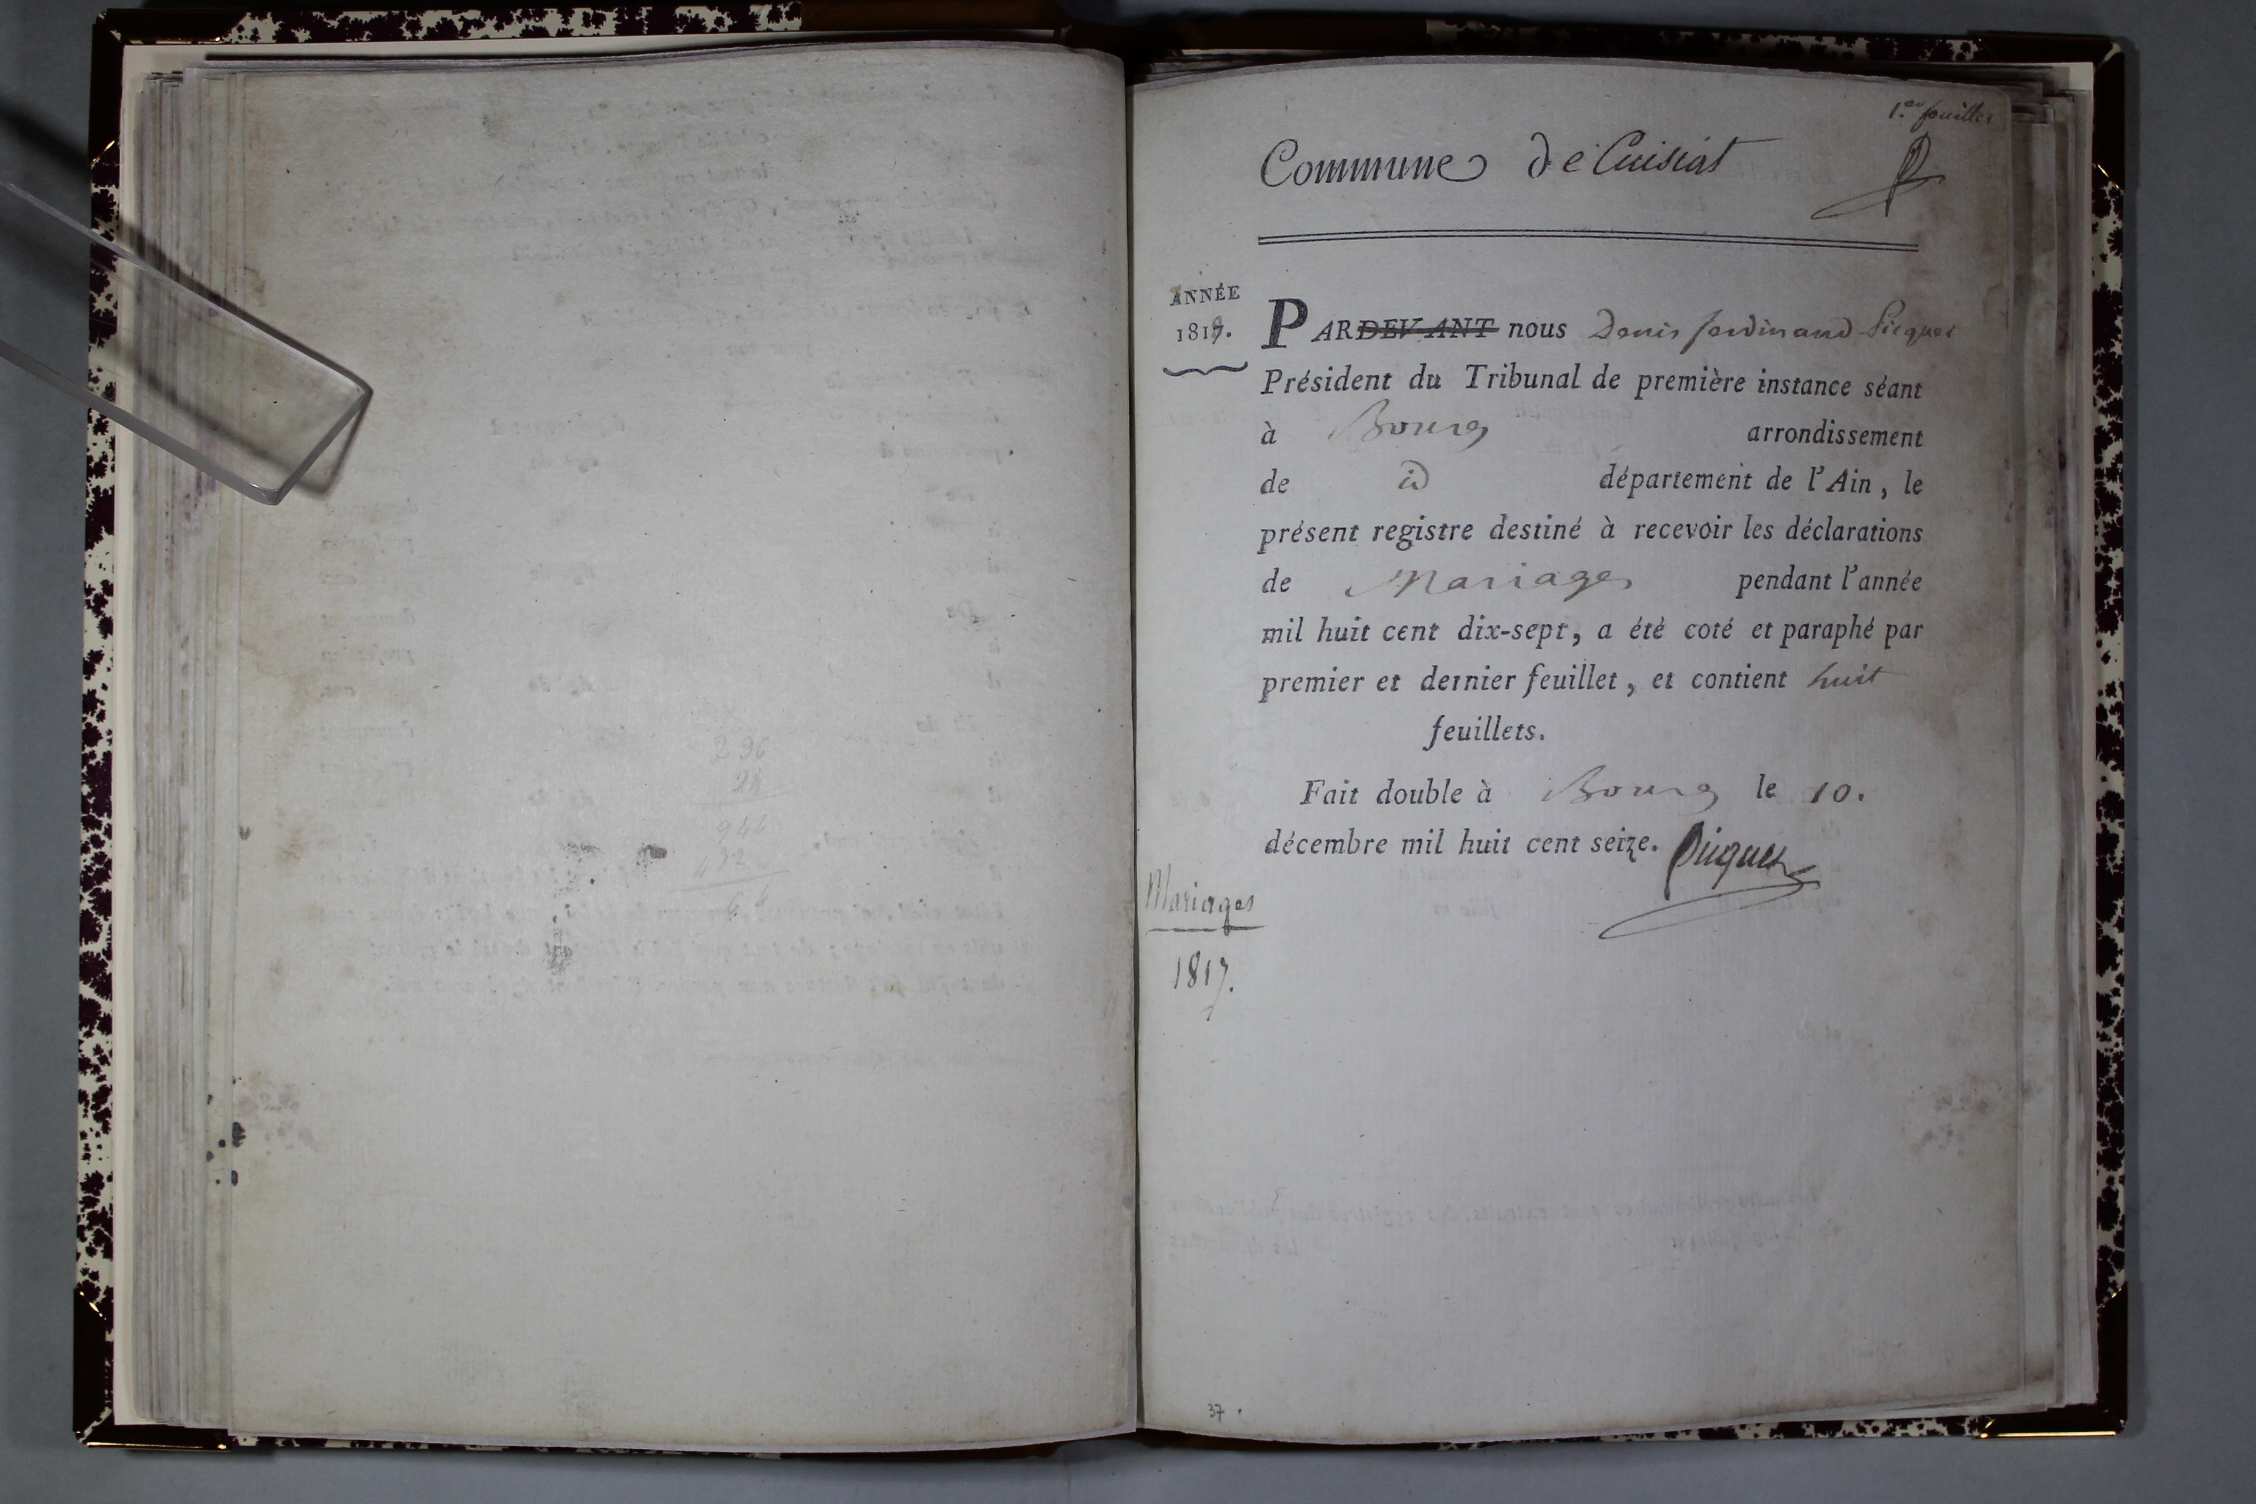 296
28
1.er feuillet
Commune de Cuisiat
ANNÉE
1817.
PARDEVANT nous Denis ferdinand Picquet
Président du Tribunal de première instance séant
à Bourg arrondissement
de id département de l'Ain, le
présent registre destiné à recevoir les déclarations
de Mariages pendant l'année
mil huit cent dix-sept, a été coté et paraphé par
premier et dernier feuillet, et contient huit
feuillets.
Fait double à Bourg le 10.
décembre mil huit cent seize. Picquet
Mariages
1817.
37